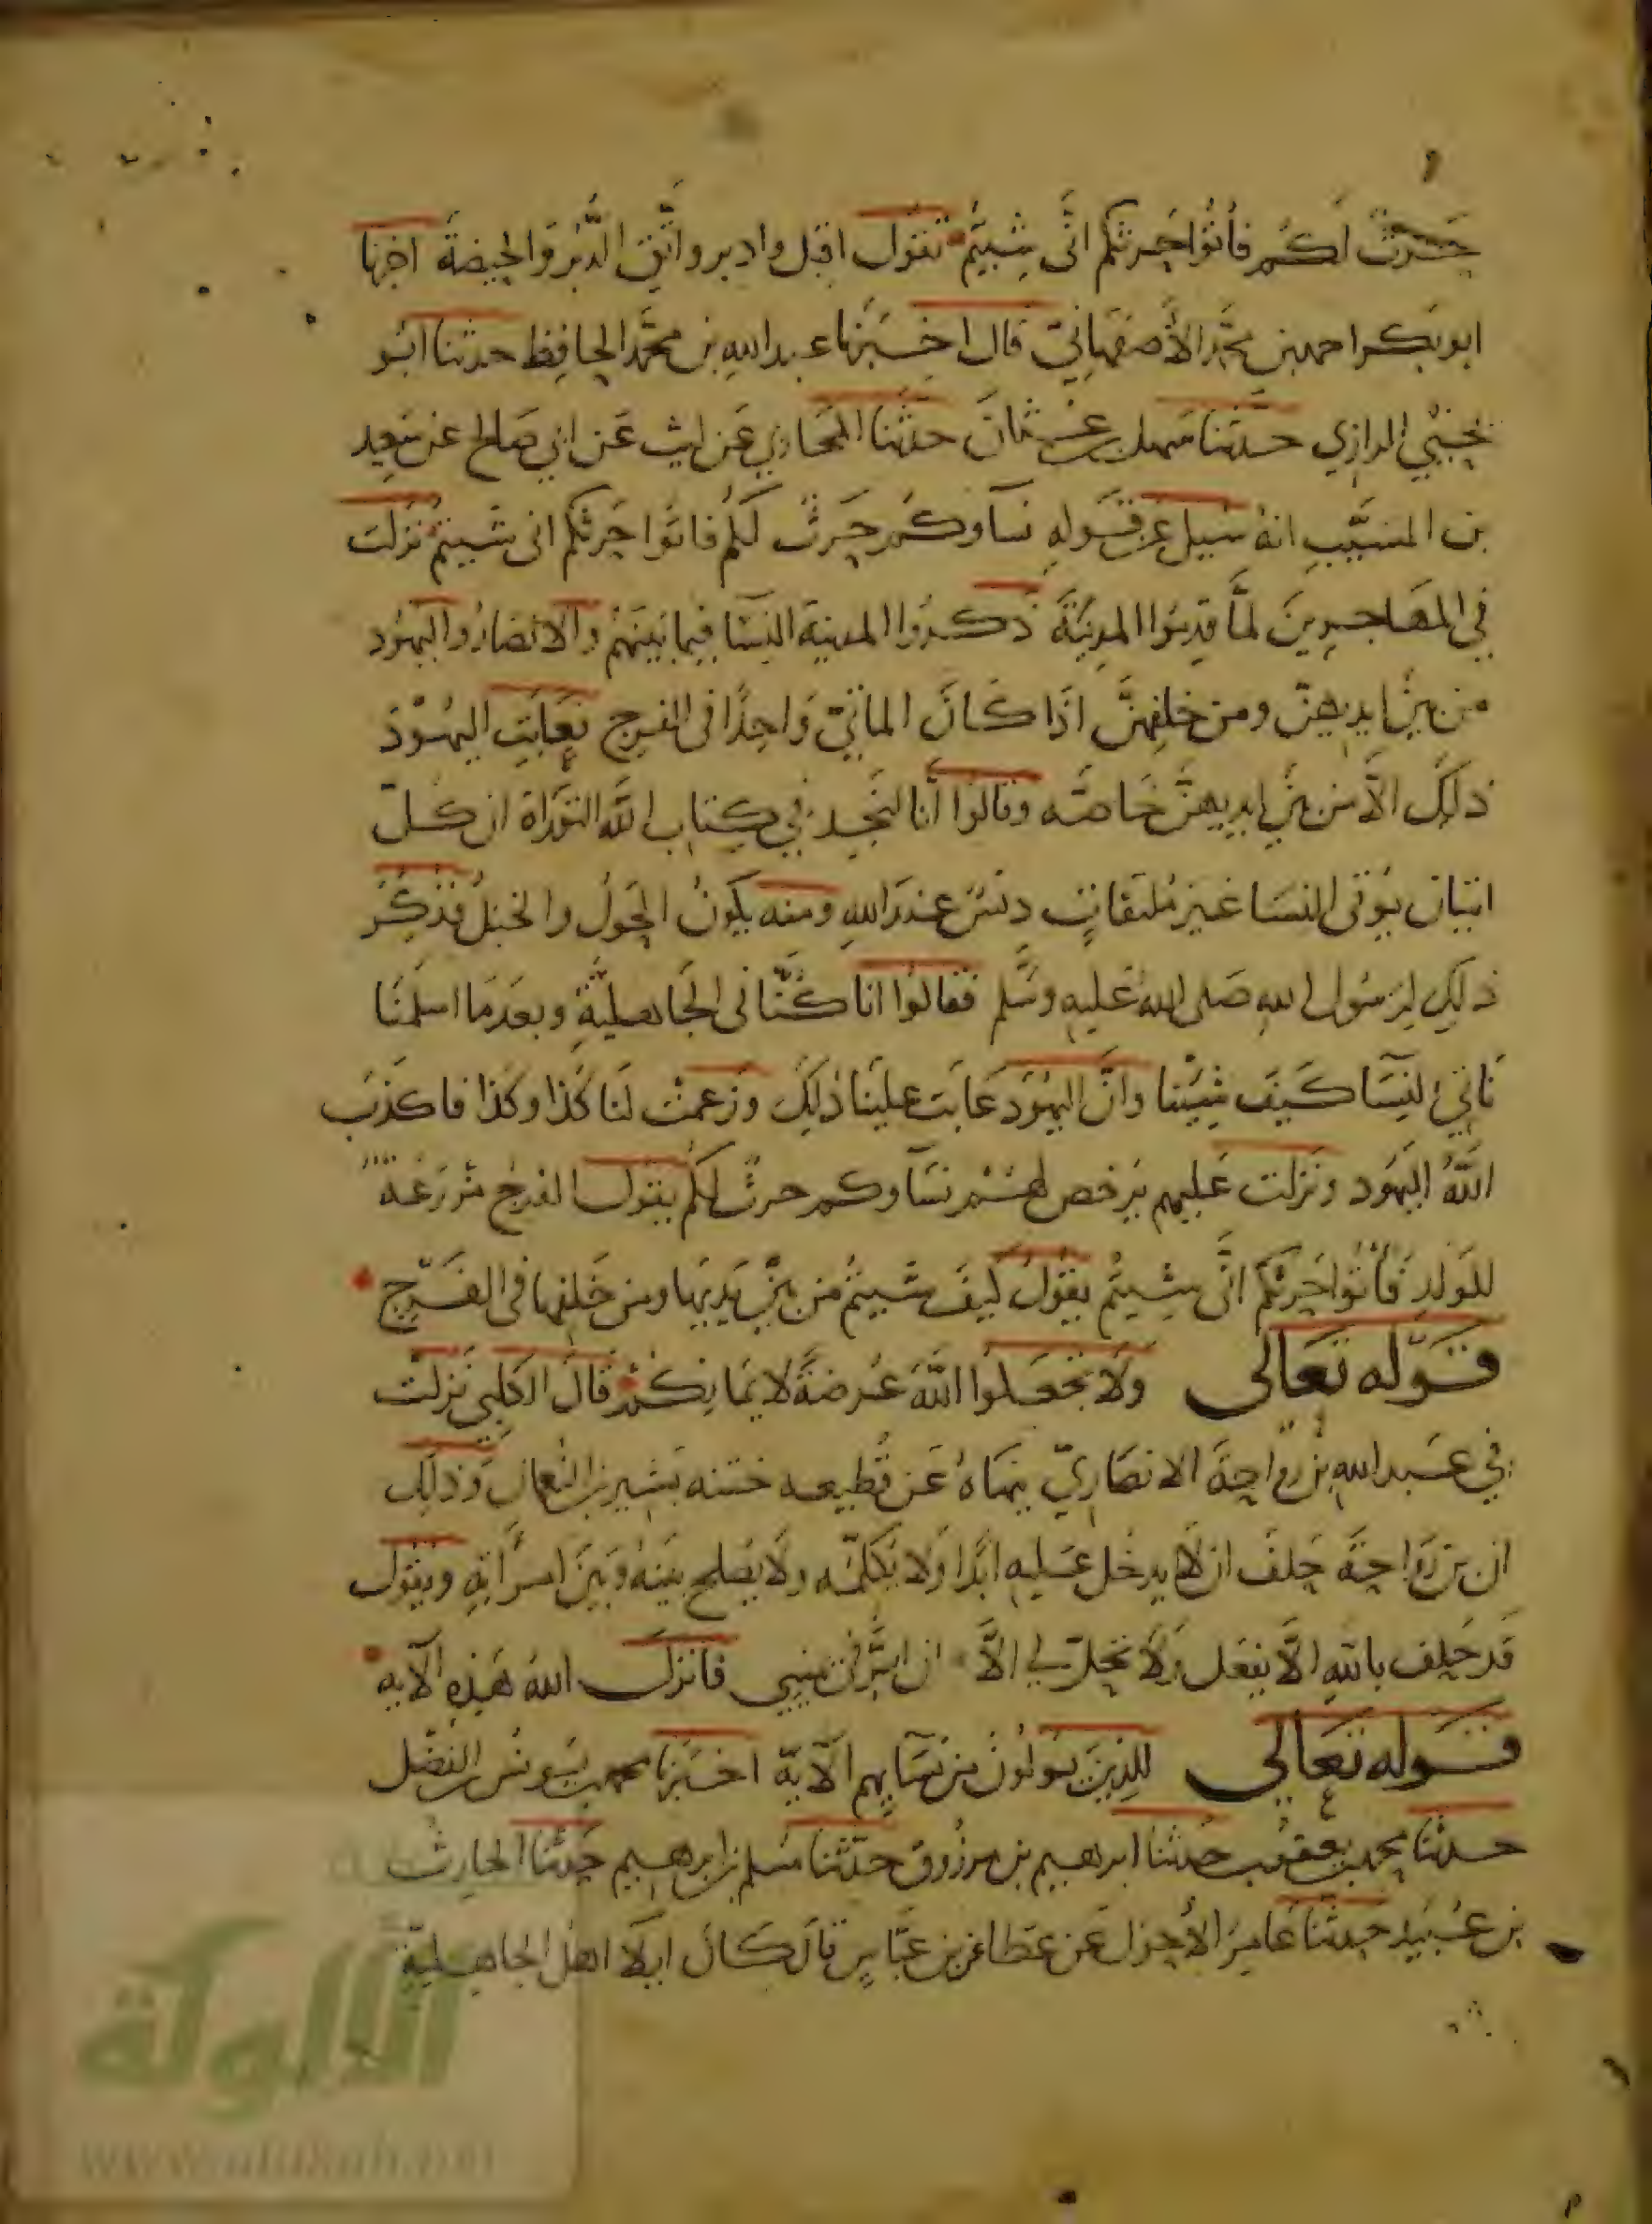 حَرْثٌ لَكُمْ فَأْتُوا حَرْثَكُمْ أَنَّى شِيتُمْ تقول اقبل وادبر واتَّقِ الدُّبُرَ وَالحيضةَ اخبرنا
ابو بَكر احمد بن محمَّد الأصفهانِيّ قال اخبَرَنا عبد الله بن محمَّد الحافِظ حدثنا ابُو
يحيَي الرازي حدَّثنا سَهل بن عثمانَ حدَّثَنا المحَاربي عَن ليث عَن ابي صَالح عَن سَعِيدِ
بن المسَيَّبِ انهُ سُيل عَن قَولهِ نسآوكُم حَرثٌ لَكُم فاتوا حَرثَكُم انى شيتم نَزلَت
في المهَاجِرِينَ لمَّا قدِمُوا المدِينَةَ ذَكَرُوا المدينة النسَا فيما بَينَهُم والانصَارُ واليَهود
من بين ايديهنّ ومن خلفِهِنَّ اذَا كَانَ الماتيّ وَاحِدًا في الفرج فعَابَتِ اليهُودُ
ذلِكَ الاّ من بين ايديهنَّ خَاصَّه وقَالوُا انَّا لنَجِد في كِتاب اللَّه التورَاة ان كُلّ
اتيان يُوتى النسَا غير مُستَلقياتٍ دنَسٌ عندَ اللهِ ومِنه يكونُ الحَوَلُ والخبَلُ فَذَكَرُ
ذلِكِ لِرَسُول اللهِ صَلى اللهُ عَليهِ وسَلَّم فقالوُا انا كُنَّا في الجَاهِليَّةِ وبعدَمَا اسلمنَا
نَاتِي النِسَا كَيفَ شِينَا وانَّ اليَهُودَ عَابَت علينَا ذلِكَ وَزعمَتْ لنَا كَذا وكَذا فاكذبَ
اللَّهُ اليَهُود ونَزلت عَليهم يُرخص لهُم نسَآوكم حرثٌ لكُم يقول الفرجُ مَزرَعةٌ
للوَلدِ فَأتُوا حَرْثَكُمْ انَّى شِيتُم يقُولُ كَيفَ شيتُم مِن بين يَدَيهَا ومن خَلفِها في الفَرجِ
قَولهُ تعَالى وَلَا تَجْعَلوُا اللَّهَ عُرضَةً لأيمَانِكُمْ قَالَ الكلبي نَزلَتْ
في عَبد اللهِ بن رَواحَةَ الانصَارِيّ ينهَاهُ عَن قَطِيعه ختنه بَشير بن النُعمان وَذلك
ان بن رَوَاحةَ حَلفَ ان لَا يدخُل عَليهِ ابَدًا وَلا يُكلمَه ولَا يُصلح بينهُ وبَينَ امرَاتِهِ ويقول
قَد حَلفت باللهِ الّا افعَل وَلَا يَحلّ لي الاَّ ان ابَرّ في يميني فَانزَلَ اللهُ هَذِهِ الآيه
قَولهُ تعَالى للذِينَ يُولُونَ مِن نسَايهِم الآيَةَ اخبَرَنا محمد بن يونُس بن الفضل
حدثنا محمد بن يعقوب حدثنا ابرهيم بن مرزُوق حدّثنا مسلم بن ابرهِيم حَدثنا الحارثُ
بن عُبَيد حدثنا عَامِر الأحوَل عَن عَطا عن بن عبَّاسٍ قالَ كَانَ ايلَا اهل الجاهِليةِ
الألوكة
www.alukah.net